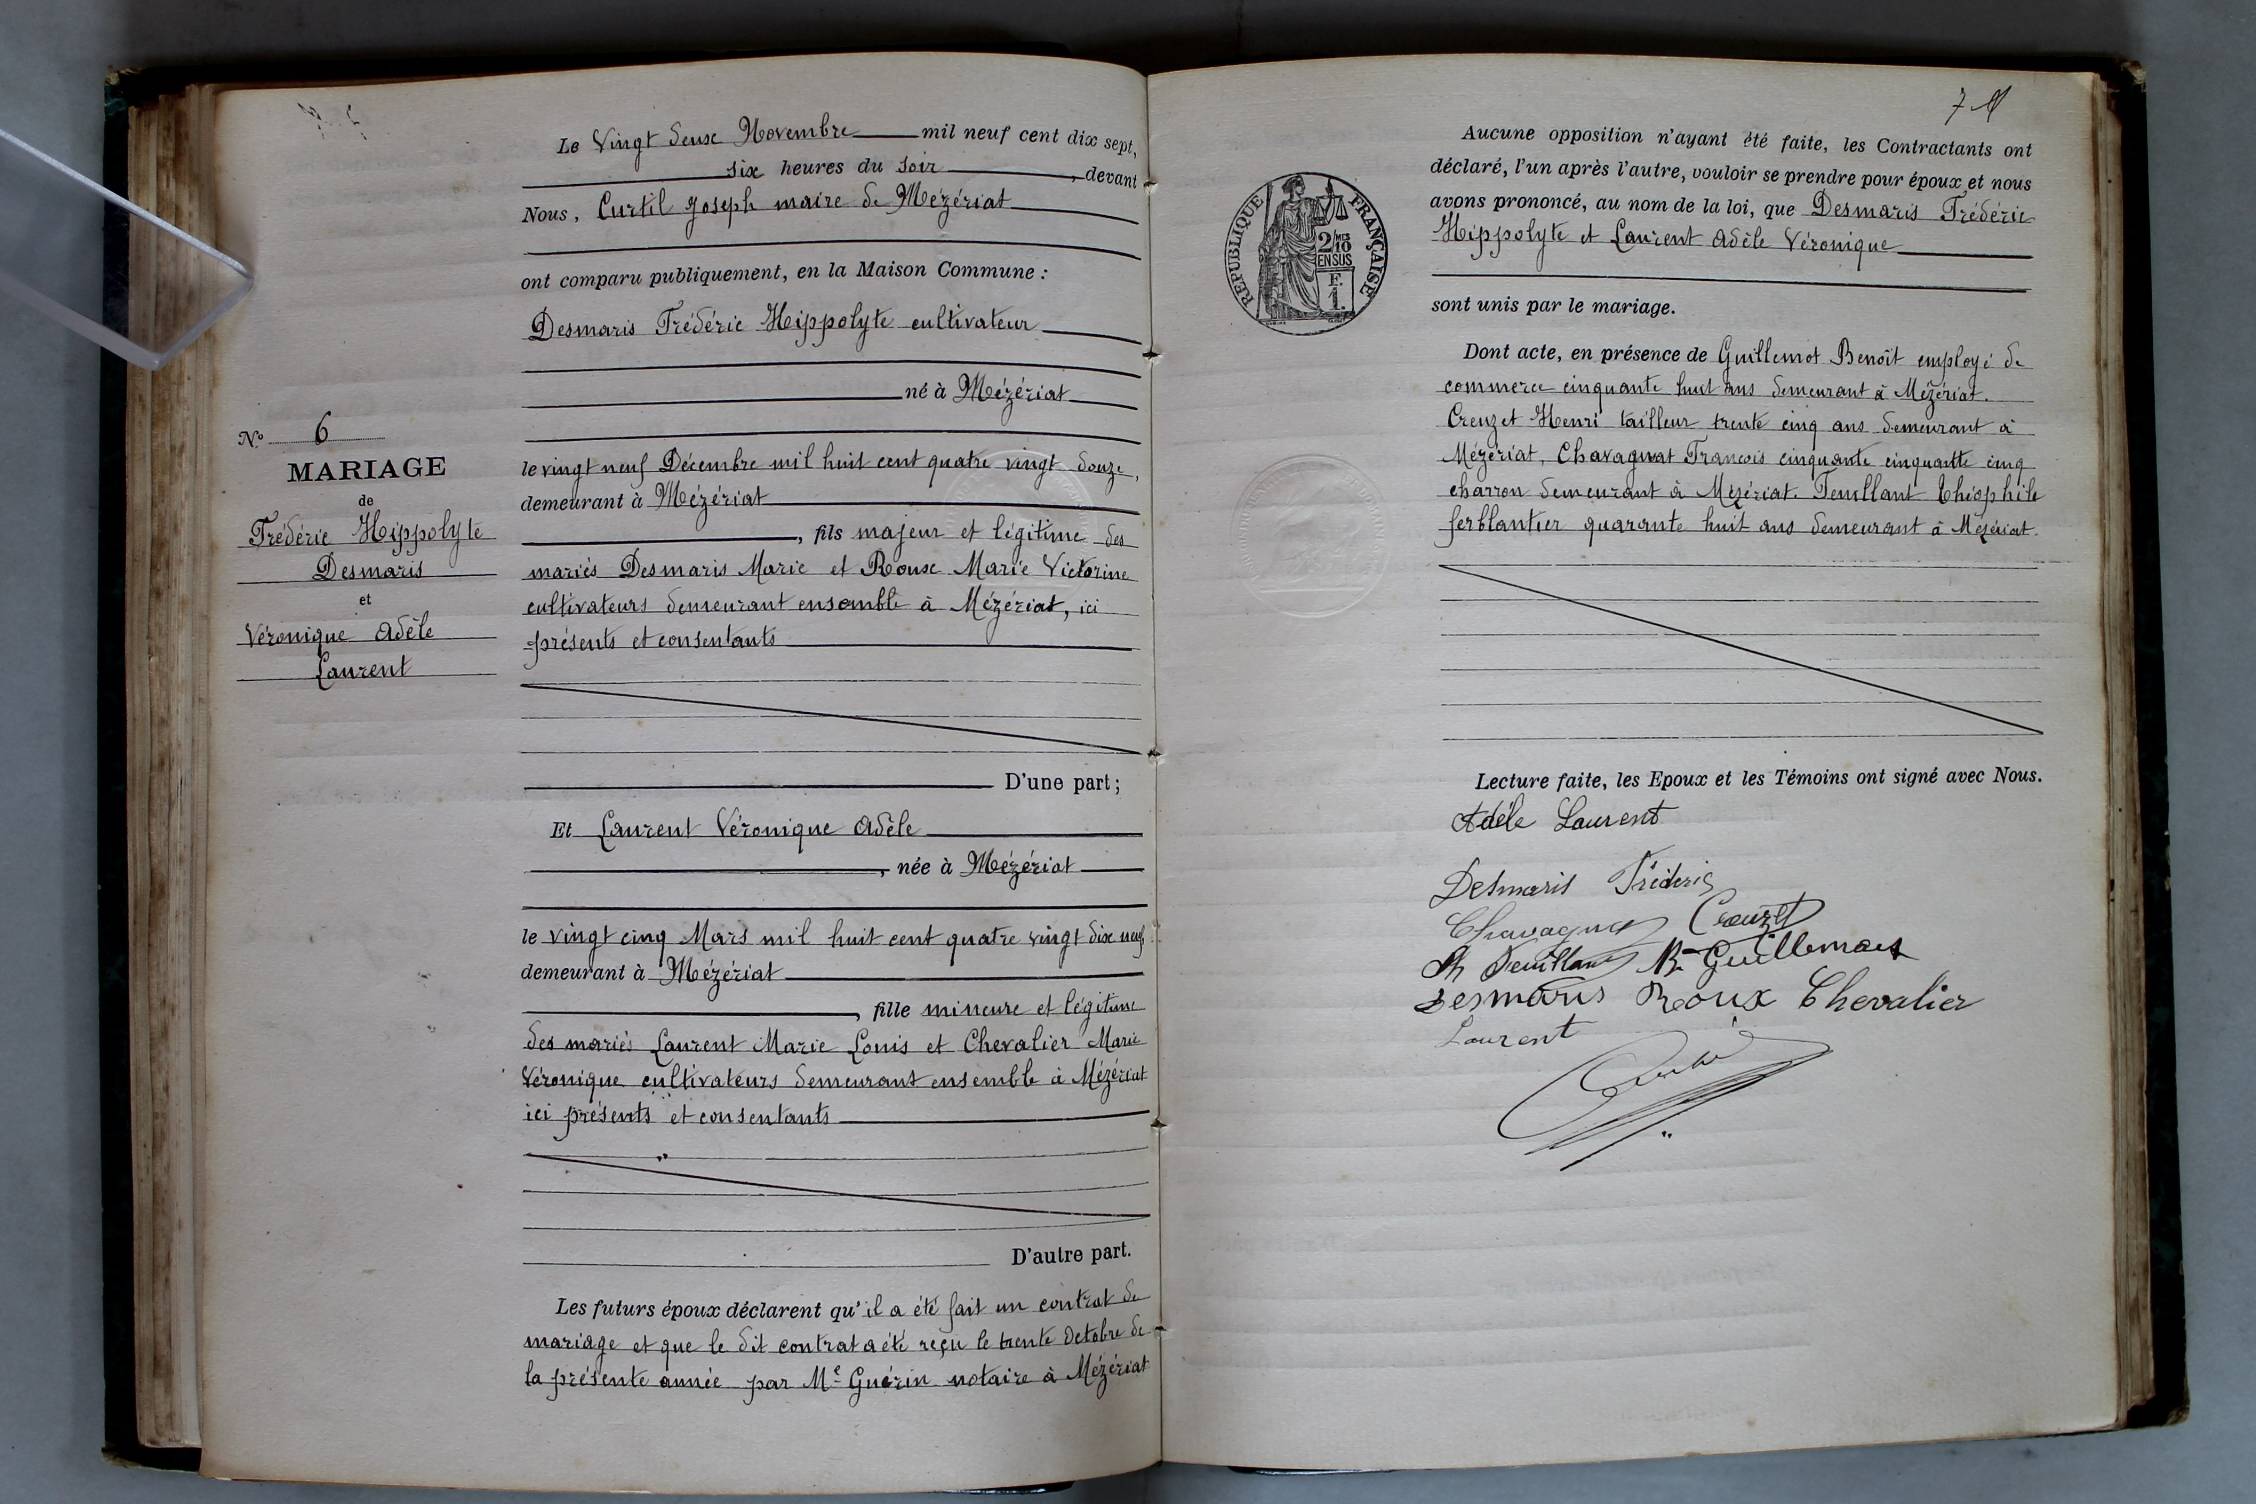 Le Vingt deux Novembre mil neuf cent dix sept,
six heures du soir, devant
Nous, Curtil Joseph maire de Mézériat
ont comparu publiquement, en la Maison Commune :
Desmaris Frédéric Hippolyte cultivateur
né à Mézériat
le vingt neuf Décembre mil huit cent quatre vingt douze,
demeurant à Mézériat
, fils majeur et légitime des
mariés Desmaris Marie et Roux Marie Victorine
cultivateurs demeurant ensemble à Mézériat, ici
présents et consentants
D'une part ;
Et Laurent Véronique Adèle
, née à Mézériat
le vingt cinq Mars mil huit cent quatre vingt dix neuf
demeurant à Mézériat
, fille mineure et légitime
des mariés Laurent Marie Louis et Chevalier Marie
Véronique cultivateurs demeurant ensemble à Mézériat
ici présents et consentants
D'autre part.
Les futurs époux déclarent qu'il a été fait un contrat de
mariage et que le dit contrat a été reçu le trente Octobre de
la présente année par Me Guérin notaire à Mézériat
No 6
MARIAGE
de
Frédéric Hippolyte
Desmaris
et
Véronique Adèle
Laurent
7
REPUBLIQUE FRANÇAISE
2/MES
10
EN SUS
F.
1.
Aucune opposition n'ayant été faite, les Contractants ont
déclaré, l'un après l'autre, vouloir se prendre pour époux et nous
avons prononcé, au nom de la loi, que Desmaris Frédéric
Hippolyte et Laurent Adèle Véronique
sont unis par le mariage.
Dont acte, en présence de Guillemot Benoît employé de
commerce cinquante huit ans demeurant à Mézériat.
Creuzet Henri tailleur trente cinq ans demeurant à
Mézériat, Chavagnat Francois cinquante cinquante cinq
charron demeurant à Mézériat. Feuillant Théophile
ferblantier quarante huit ans demeurant à Mézériat.
Lecture faite, les Epoux et les Témoins ont signé avec Nous.
Adèle Laurent
Desmaris Fréderic
Chavagnat Creuzet
Th Feuillant B. Guillemot
Desmaris Roux Chevalier
Laurent
Curtil